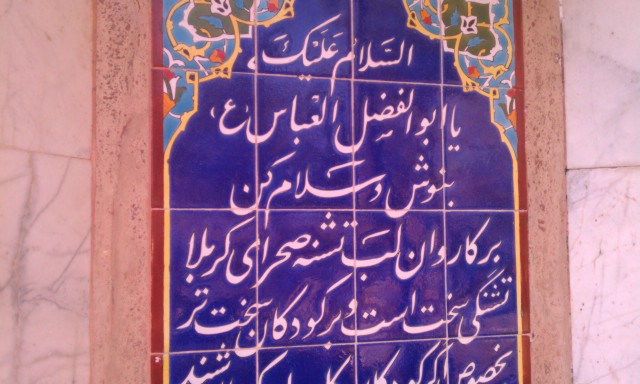 السلام علیک
یا ابوالفضل العباس ع
بنوش و سلام کن
بر کاروان لب تشنه صحرای کربلا
تشنگی سخت است و بر کودکان سخت تر
بخصوص که کودکان